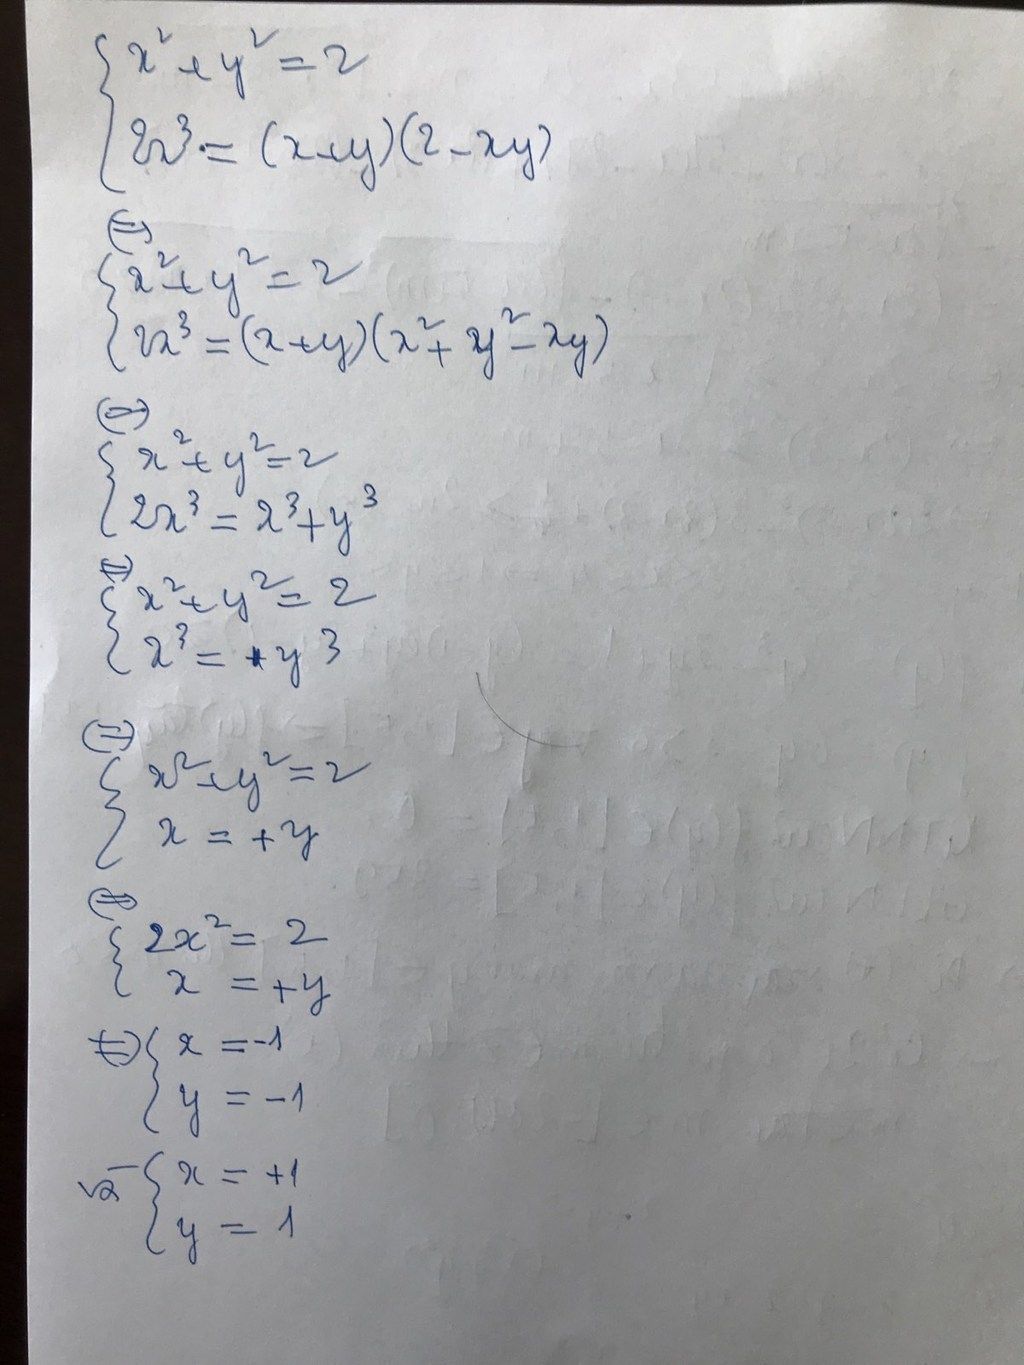 { x² + y² = 2
2x³ = (x+y)(2-xy)
⇔
{ x² + y² = 2
2x³ = (x+y)(x² + y² - xy)
⇔
{ x² + y² = 2
2x³ = x³ + y³
⇔
{ x² + y² = 2
x³ = + y³
⇔
{ x² + y² = 2
x = + y
⇔
{ 2x² = 2
x = + y
⇔ { x = -1
y = -1
và { x = +1
y = 1